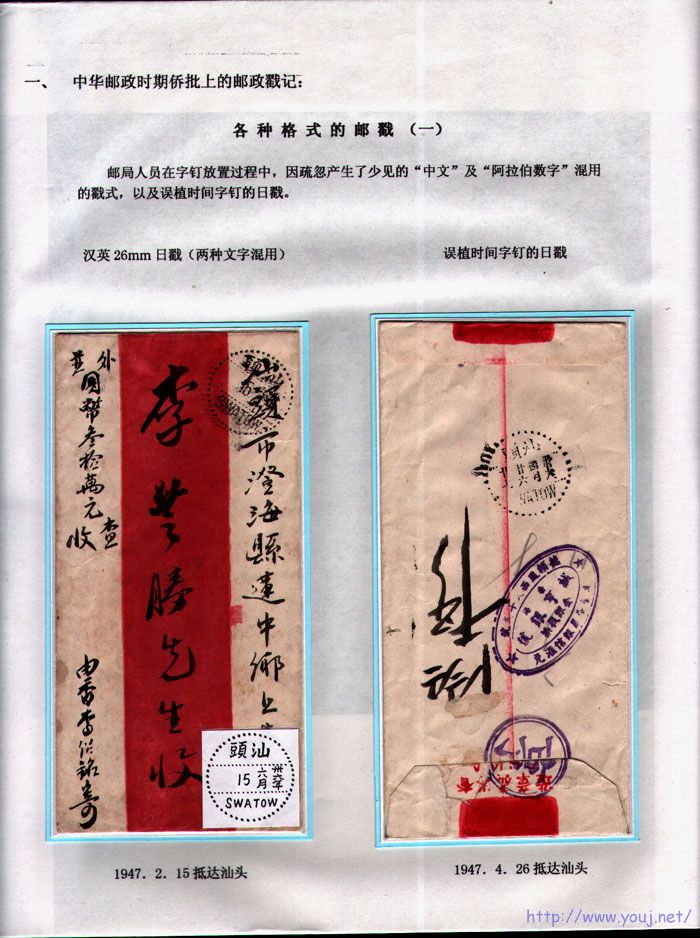 一、 中华邮政时期侨批上的邮政戳记：
各种格式的邮戳（一）
邮局人员在字钉放置过程中，因疏忽产生了少见的“中文”及“阿拉伯数字”混用
的戳式，以及误植时间字钉的日戳。
汉英26mm日戳（两种文字混用）
误植时间字钉的日戳
汕頭市澄海縣蓮中鄉上
SWATOW
李 勝先生收
外
國幣叁拾萬元
查收
由香李
頭汕
15 六月 卅六年
SWATOW
汕頭
SWATOW
1947．2．15抵达汕头
1947．4．26抵达汕头
http://www.youj.net/